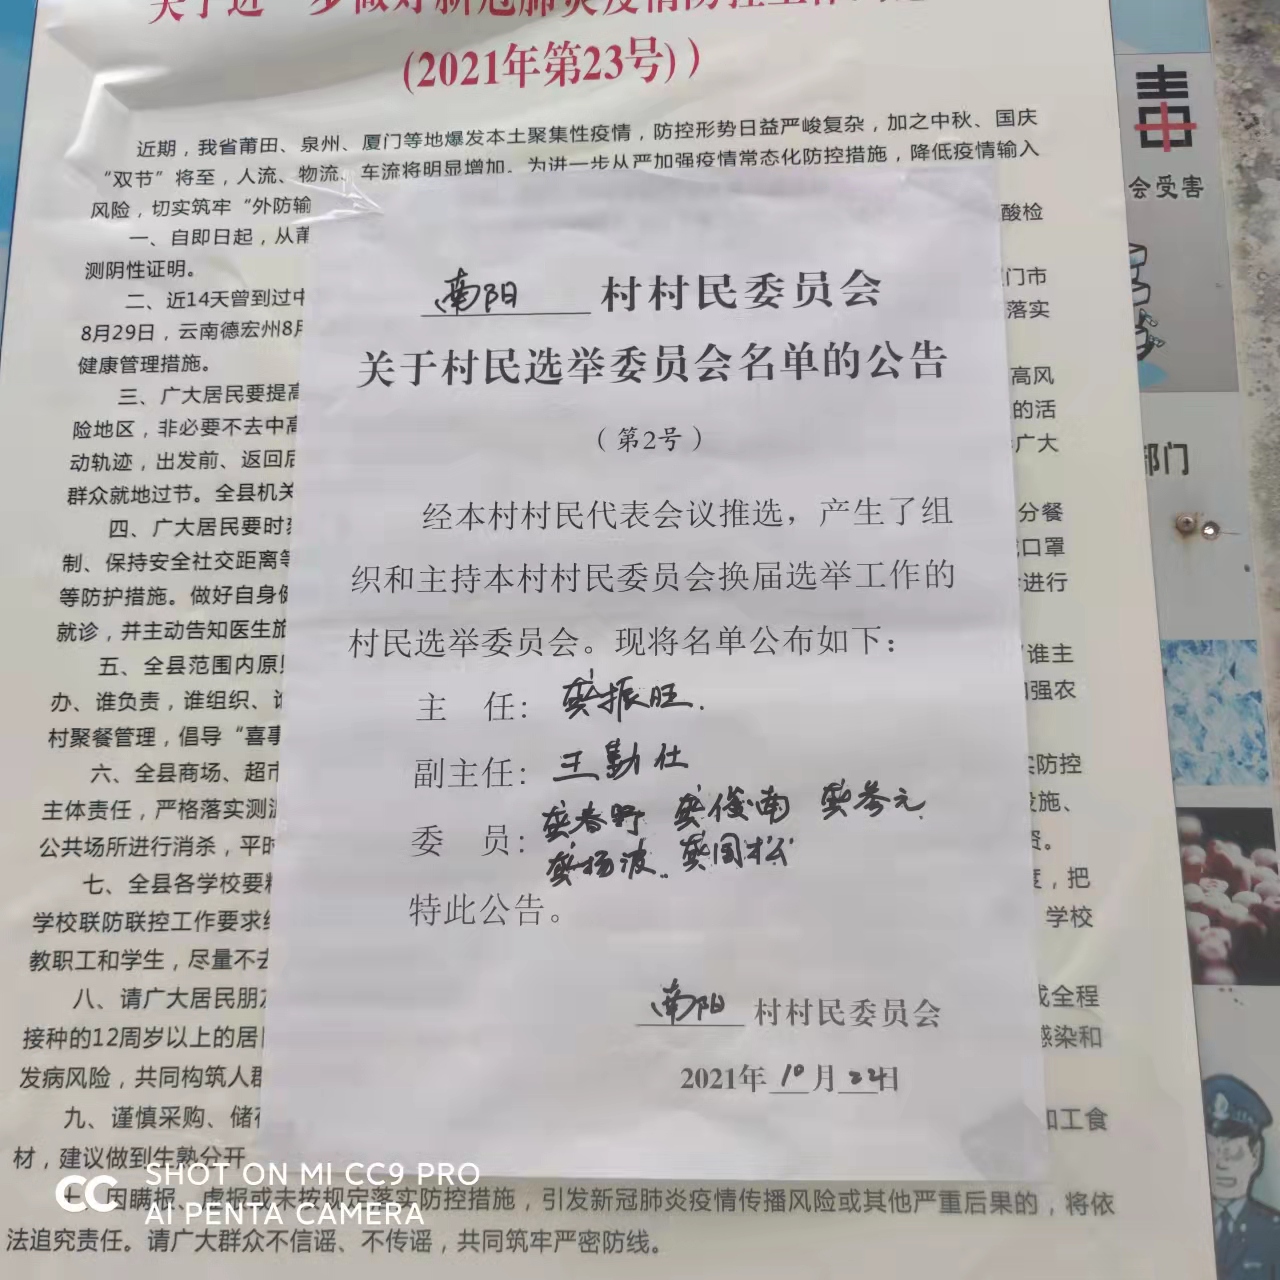 (2021年第23号))
近期，我省莆田、泉州、厦门等地爆发本土聚集性疫情，防控形势日益严峻复杂，加之中秋、国庆
“双节”将至，人流、物流、车流将明显增加。为进一步从严加强疫情常态化防控措施，降低疫情输入
风险，切实筑牢“外防输
一、自即日起，从莆
酸检
测阴性证明。
二、近14天曾到过中
门市
8月29日，云南德宏州8月
落实
健康管理措施。
三、广大居民要提高
高风
险地区，非必要不去中高
的活
动轨迹，出发前、返回后
广大
群众就地过节。全县机关
四、广大居民要时刻
分餐
制、保持安全社交距离等
口罩
等防护措施。做好自身健
进行
就诊，并主动告知医生旅
五、全县范围内原则
谁主
办、谁负责，谁组织、谁
强农
村聚餐管理，倡导“喜事
六、全县商场、超市
防控
主体责任，严格落实测温
设施、
公共场所进行消杀，平时
七、全县各学校要
度，把
学校联防联控工作要求
学校
教职工和学生，尽量不去
八、请广大居民朋友
成全程
接种的12周岁以上的居
感染和
发病风险，共同构筑人群
九、谨慎采购、储存
加工食
材，建议做到生熟分开
十、因瞒报、虚报或未按规定落实防控措施，引发新冠肺炎疫情传播风险或其他严重后果的，将依
法追究责任。请广大群众不信谣、不传谣，共同筑牢严密防线。
南阳 村村民委员会
关于村民选举委员会名单的公告
（第2号）
经本村村民代表会议推选，产生了组
织和主持本村村民委员会换届选举工作的
村民选举委员会。现将名单公布如下：
主 任：龚振旺.
副主任：王勤仕
委 员：龚春野 龚俊南 龚参元
龚扬波 龚国松
特此公告。
南阳 村村民委员会
2021年 10 月 24日
毒
会受害
部门
SHOT ON MI CC9 PRO
AI PENTA CAMERA